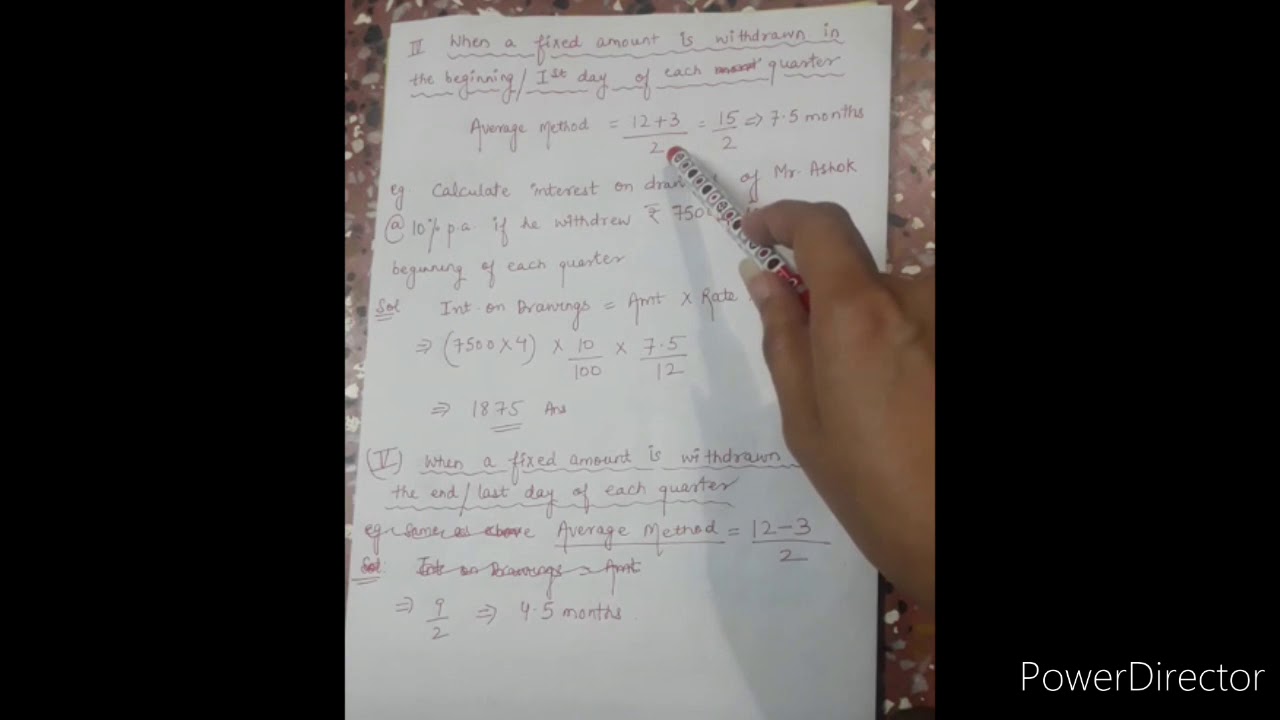 IV When a fixed amount is withdrawn in
the beginning/Ist day of each quarter
Average Method = 12+3/2 = 15/2 ⇒ 7.5 months
eg Calculate interest on of Mr. Ashok
@ 10% p.a. if he withdrew ₹ 750
beginning of each quarter
Sol Int. on Drawings = Amt × Rate
⇒ (7500×4) × 10/100 × 7.5/12
⇒ 1875 Ans
(V) When a fixed amount is withdrawn
the end/last day of each quarter
eg:- Same as above Average Method = 12-3/2
Sol Int on Drawings = Amt
⇒ 9/2 ⇒ 4.5 months
PowerDirector